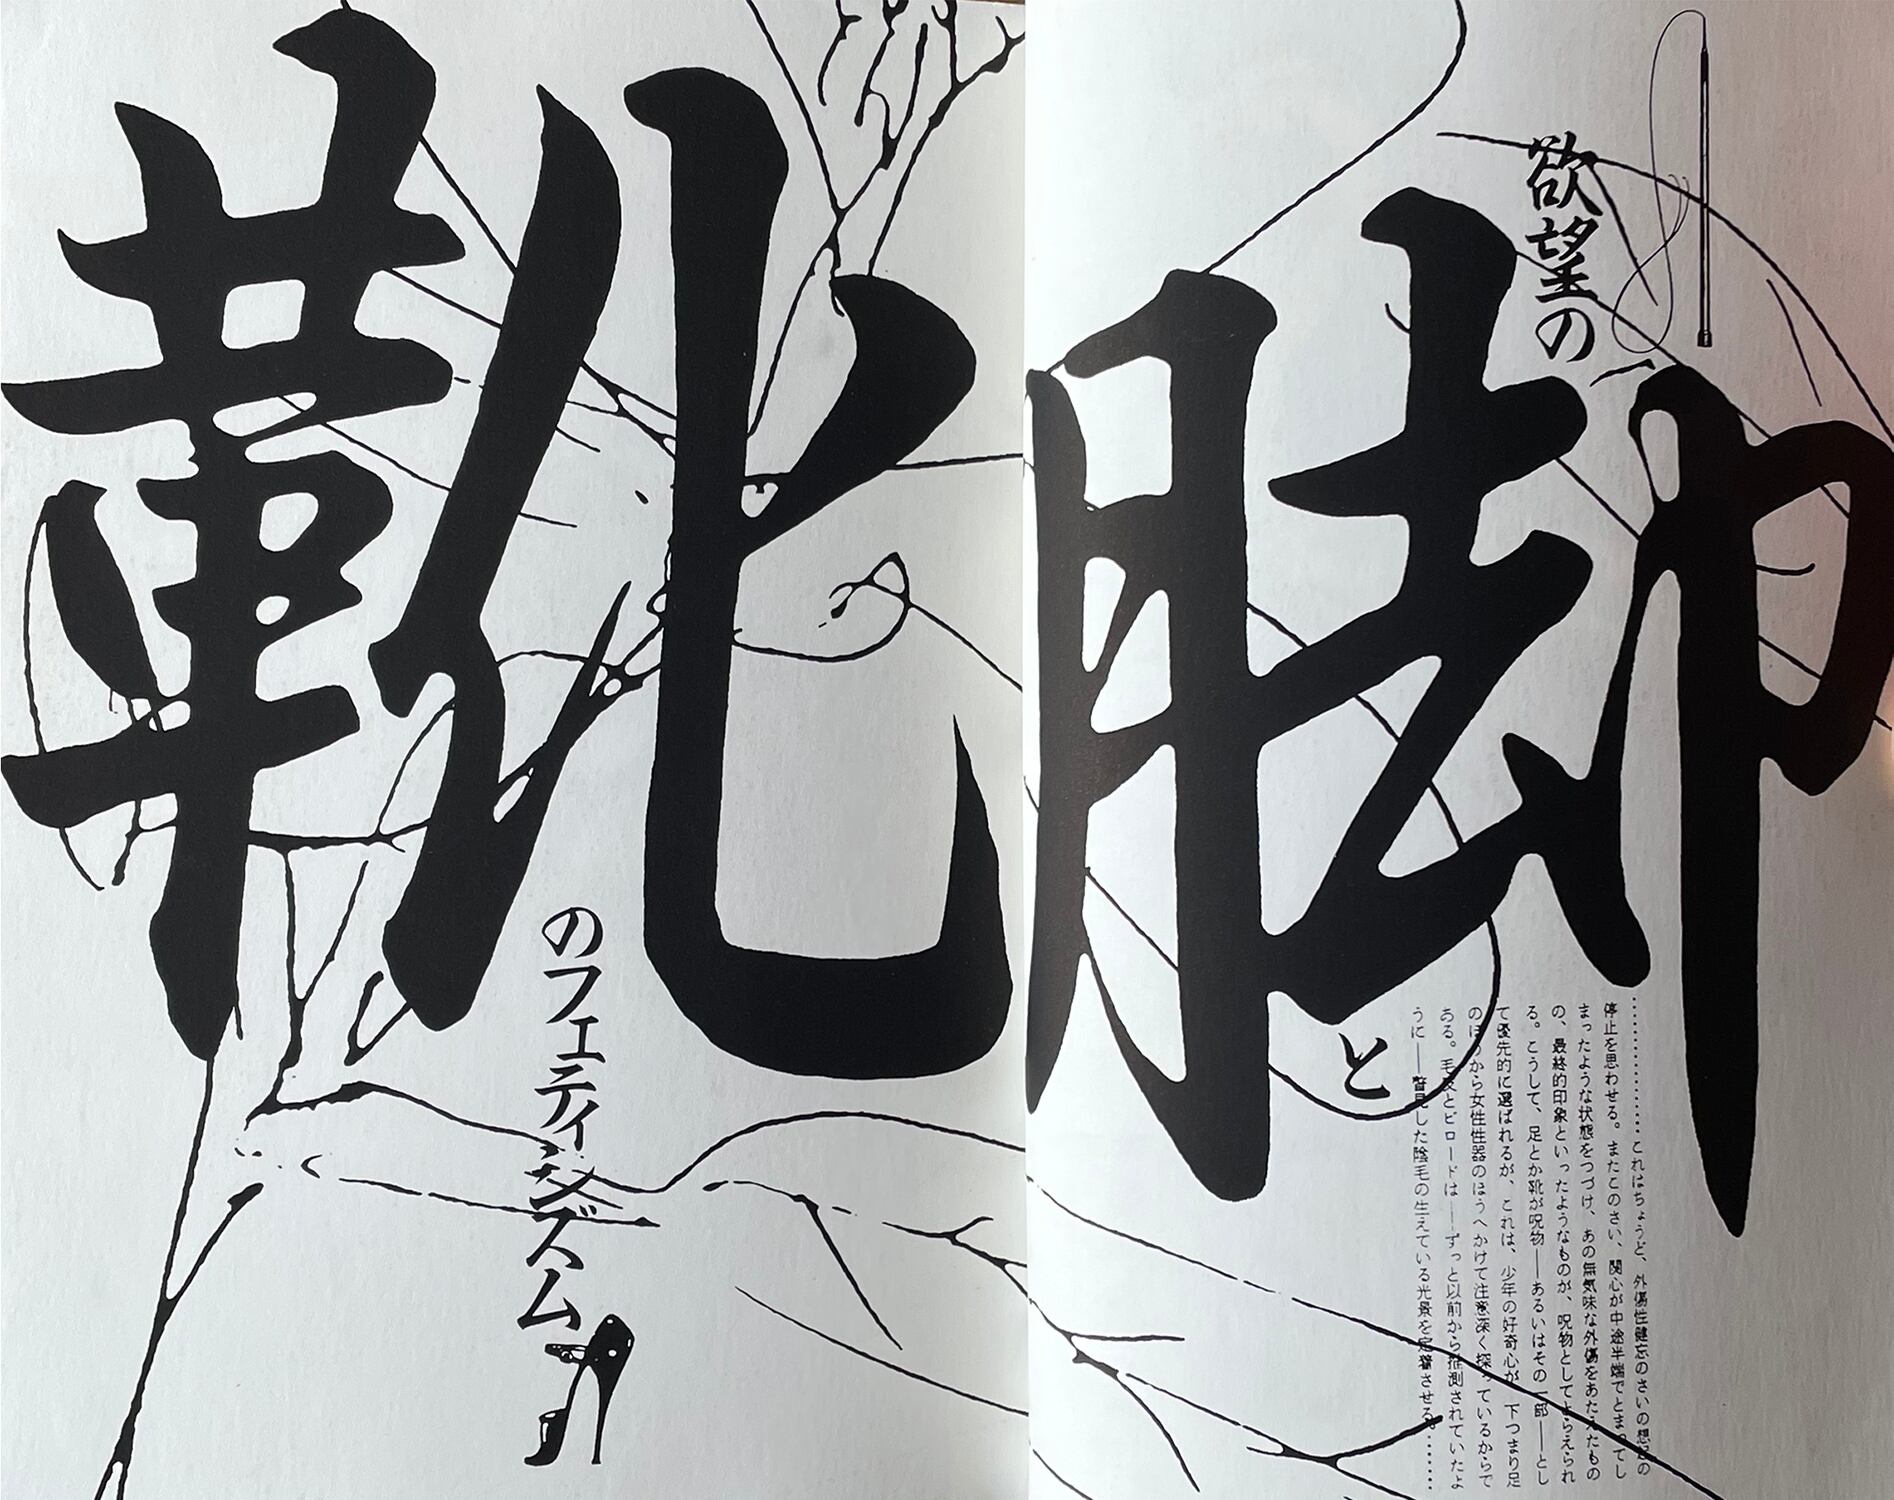 欲望の
脚
と
靴
のフェティシズム
……………これはちょうど、外傷性健忘のさいの想起の
停止を思わせる。またこのさい、関心が中途半端でとまってし
まったような状態をつづけ、あの無気味な外傷をあたえたもの
の、最終的印象といったようなものが、呪物としてとらえられ
る。こうして、足とか靴が呪物――あるいはその一部――とし
て優先的に選ばれるが、これは、少年の好奇心が、下つまり足
のほうから女性性器のほうへかけて注意深く探っているからで
ある。毛皮とビロードは――ずっと以前から推測されていたよ
うに――瞥見した陰毛の生えている光景を定着させる。………